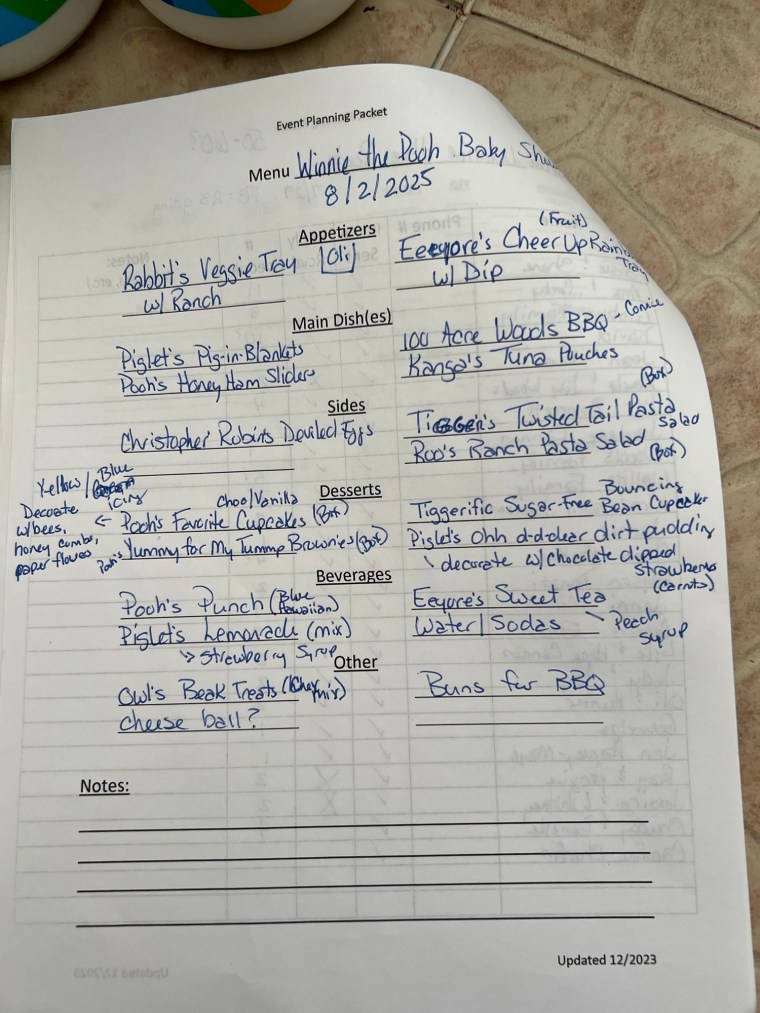 Event Planning Packet
Menu Winnie the Pooh Baby
8/2/2025
Appetizers
Rabbit's Veggie Tray
w/ Ranch
Oli
(Fruit)
Eeeyore's Cheer Up
Tray
w/ Dip
Main Dish(es)
Piglet's Pig-in-Blankets
Pooh's Honey Ham Sliders
100 Acre Woods BBQ -
Kanga's Tuna Pouches
Sides
Christopher Robin's Deviled Eggs
(Box)
Tigger's Twisted Tail Pasta
Salad
Roo's Ranch Pasta Salad (Box)
Desserts
Yellow/Blue
icing
Decorate
w/bees,
honey combs,
paper flowers
Choc/Vanilla
← Pooh's Favorite Cupcakes (Box)
Pooh's Yummy for My Tummy Brownies (Box)
Bouncing
Tiggerific Sugar-Free Bean Cupcake
Piglet's Ohh d-d-dear dirt pudding
decorate w/ chocolate dipped
strawberries
(carrots)
Beverages
Pooh's Punch (Blue
Hawaiian)
Piglet's Lemonade (mix)
↳ Strawberry Syrup
Eeyore's Sweet Tea
Water/Sodas
Peach
syrup
Other
Owl's Beak Treats (Chex
mix)
cheese ball?
Buns for BBQ
Notes:
Updated 12/2023